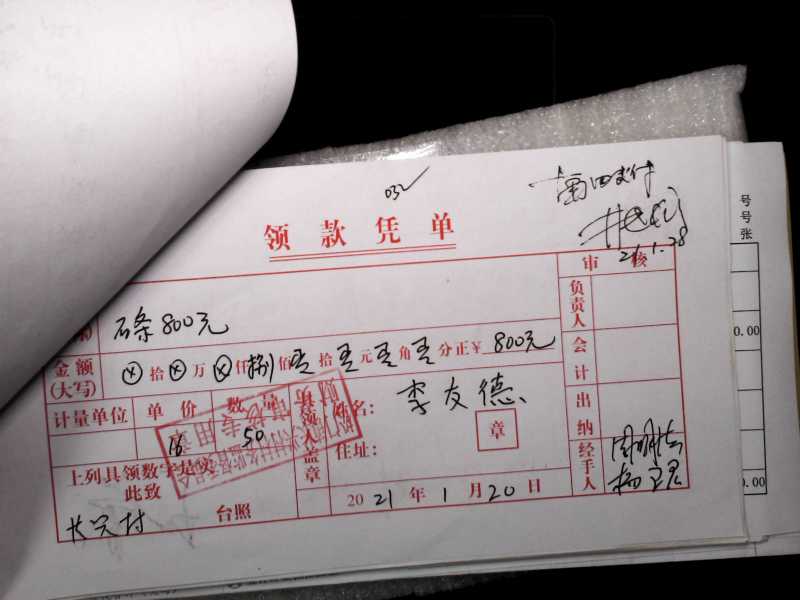 032
福田支付
21.1.28
领款凭单
审 核
石条800元
负责人
金额
(大写)
ⓧ拾ⓧ万ⓧ仟捌佰零拾零元零角零分正￥800元
会计
计量单位 单价 数量
16 50
具领人盖章
姓名：李友德
章
住址：
出纳
上列具领数字是实
此致
长兴村 台照
2021年1月20日
经手人
号
号
张
0.00
0.00